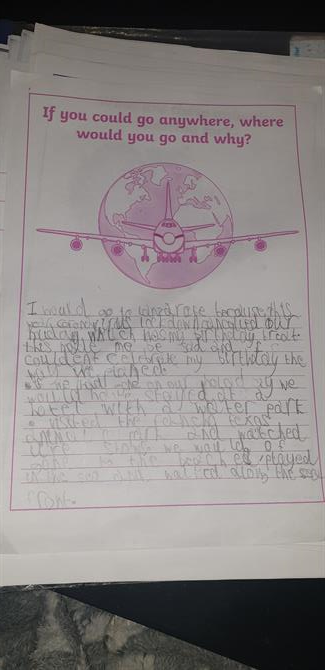 If you could go anywhere, where
would you go and why?
I would go to lanzarote because this
year coronavirus lockdown cancelled our
holiday which was my birthday treat
this made me be sad and I
couldent celebrate my birthday the
way we planed.
If we had gone on our holiday we
would have stayed at a
hotel with a water park
visited the rancho texas
animal park and watched
the shows we would of
gone to the beach played
in the sea and walked along the sea
front.